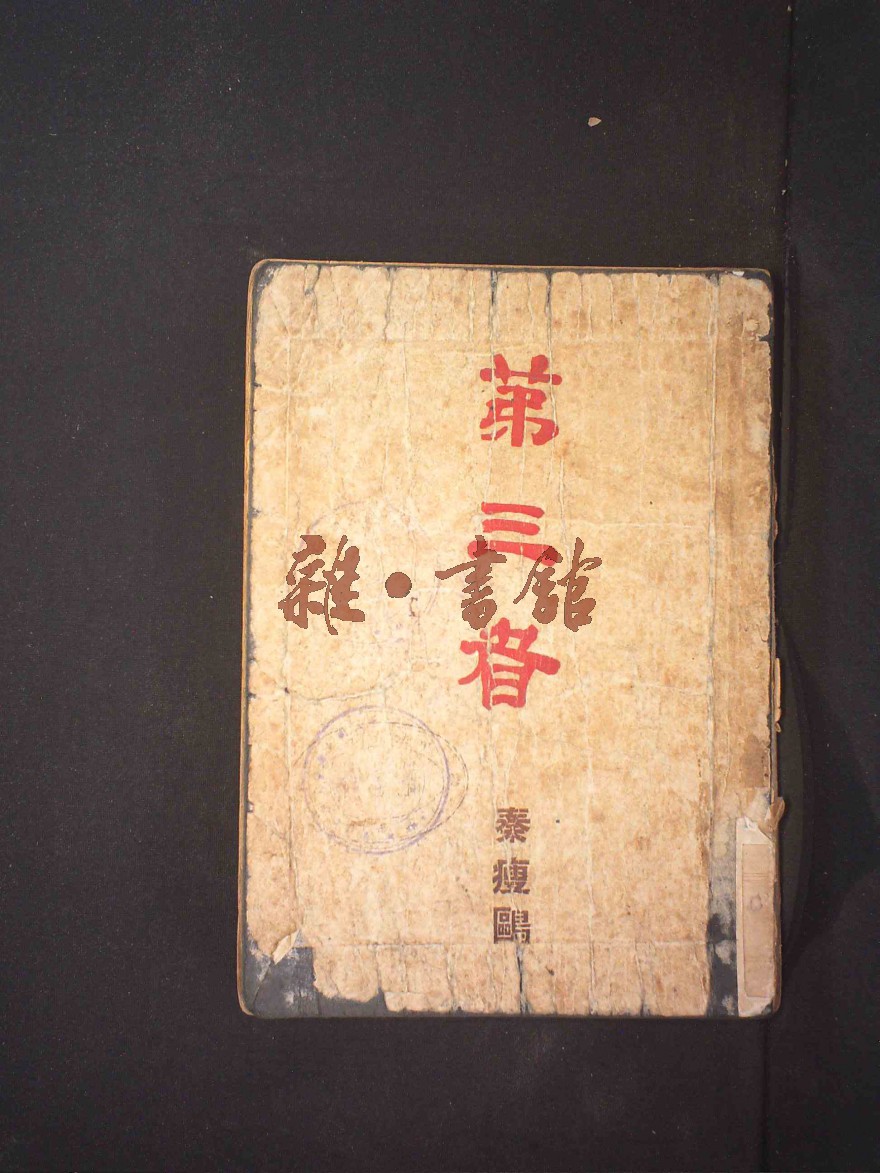 第三者
雜·書館
秦瘦鷗